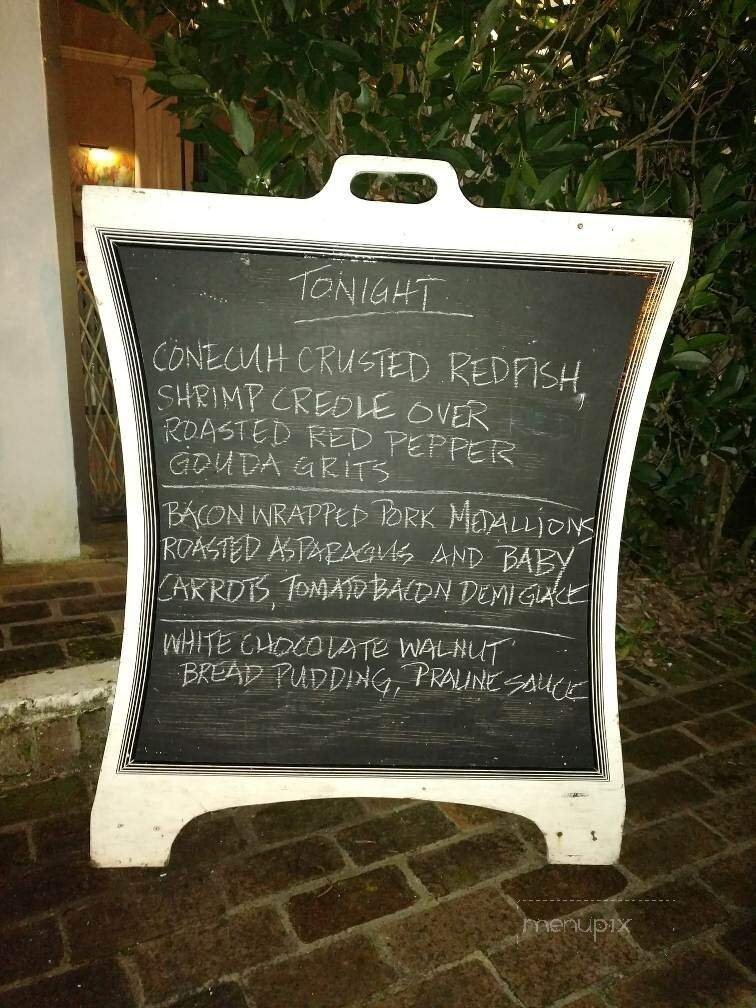 TONIGHT
CONECUH CRUSTED REDFISH,
SHRIMP CREOLE OVER
ROASTED RED PEPPER
GOUDA GRITS
BACON WRAPPED PORK MEDALLIONS
ROASTED ASPARAGUS AND BABY
CARROTS, TOMATO BACON DEMI GLACE
WHITE CHOCOLATE WALNUT
BREAD PUDDING, PRALINE SAUCE
menupix